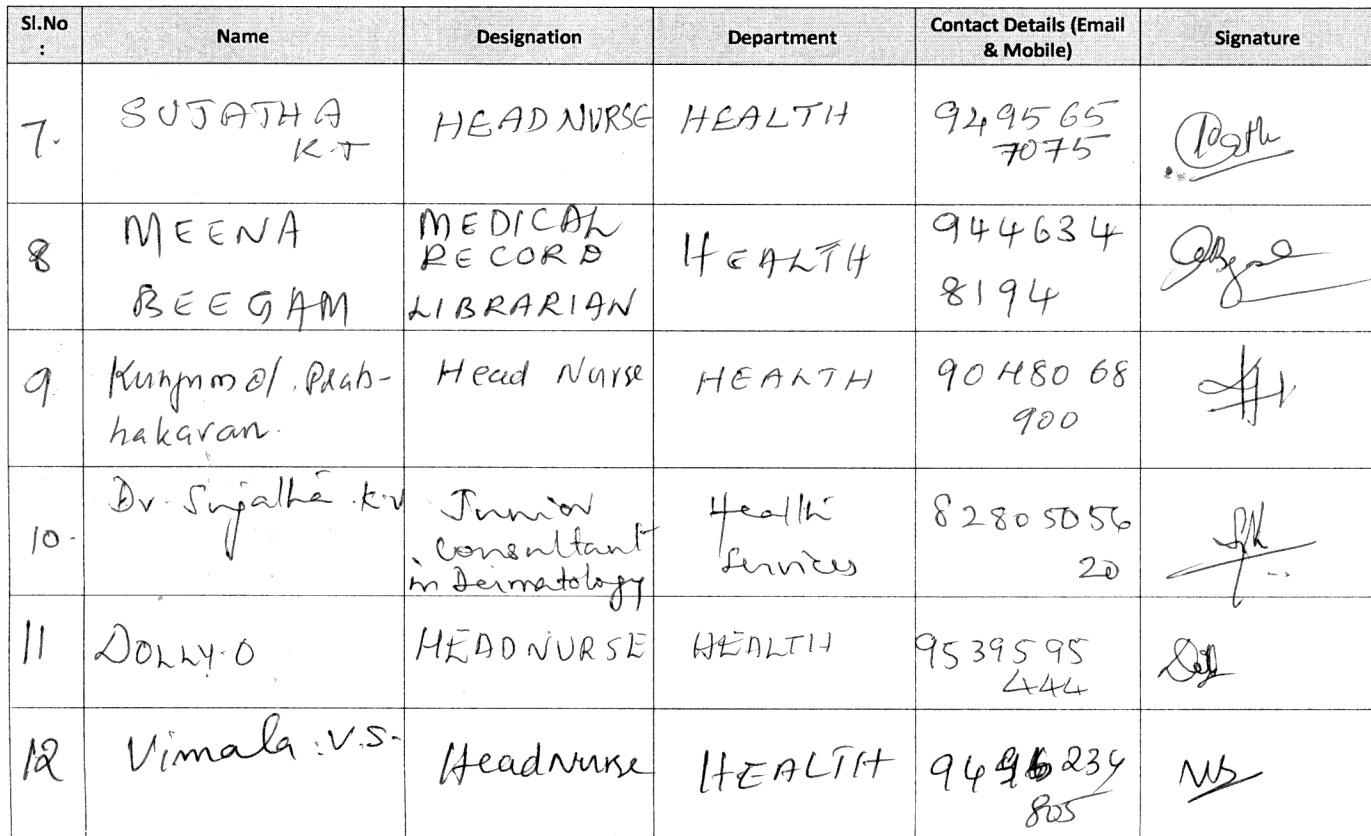 Sl.No : Name Designation Department Contact Details (Email & Mobile) Signature
7. SUJATHA K.T HEAD NURSE HEALTH 949565 7075
8 MEENA BEEGAM MEDICAL RECORD LIBRARIAN HEALTH 944634 8194
9 Kunjumol. Prab-hakaran. Head Nurse HEALTH 900
10. Dr. Sujatha .K.V Junior Consultant in Dermatology Health Services 82805056 20
11 DOLLY.O HEAD NURSE HEALTH 9539595 444
12 Vimala .V.S. Head Nurse HEALTH 805